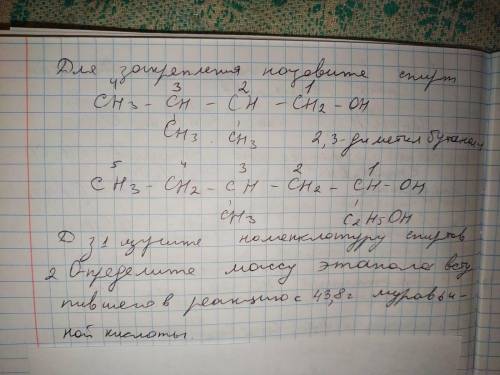 Для закрепления назовите спирт
4 3 2 1
CH3 - CH - CH - CH2 - OH
CH3 CH3 2,3-диметил бутанол
5 4 3 2 1
CH3 - CH2 - CH - CH2 - CH - OH
CH3 C2H5OH
Д з 1 изучите номенклатуру спиртов
2 Определите массу этанола всту
пившего в реакцию с 43,8 г муравьи-
ной кислоты.